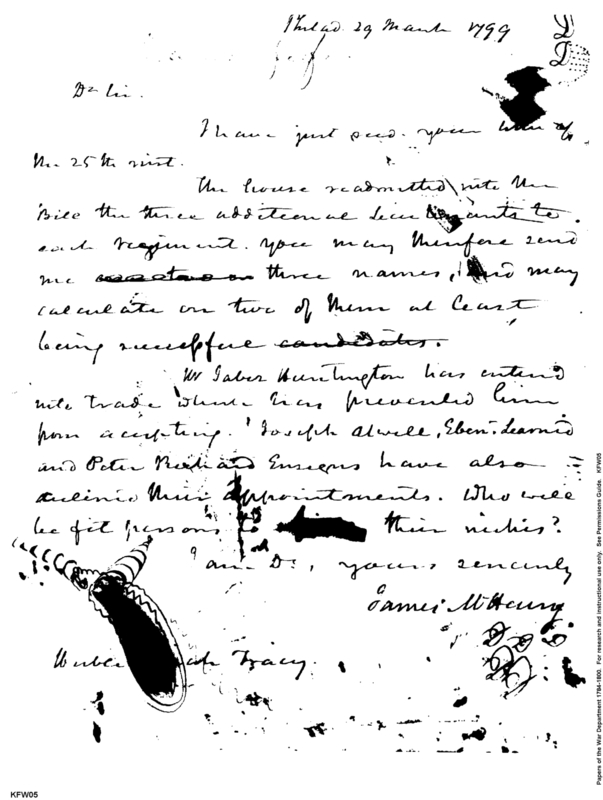 Philad. 29 March 1799
Dr Sir.
I have just recd. your letter of
the 25th inst.
The house readmitted into the
Bill the three additional Lieutenants to
each regiment. You may therefore send
me three names, and may
calculate on two of them at least
being successful candidates.
Mr Jabez Huntington has entered
into trade which has prevented him
from accepting. Joseph Atwell, Eben. Learned
and Peter Richard Ensigns have also
declined their appointments. Who will
be fit persons to their niches?
I am Dr., yours sincerely
James McHenry
Uriah Tracy.
KFW05
Papers of the War Department 1784-1800. For research and instructional use only. See Permissions Guide. KFW05